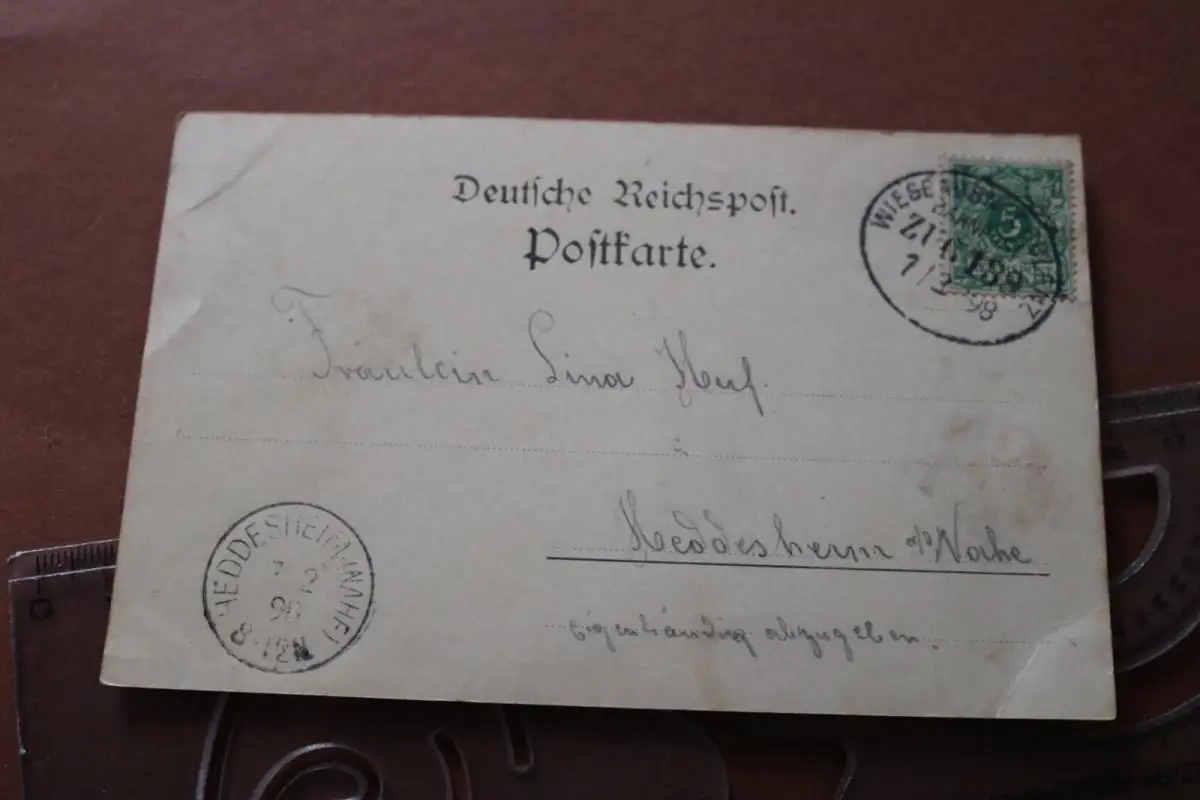 Deutsche Reichspost.
Postkarte.
ZUG 189
98
5
Fräulein Lina Huf.
in
Heddesheim a/d Nahe
eigenhändig abzugeben.
HEDDESHEIM (NAHE)
8-12N